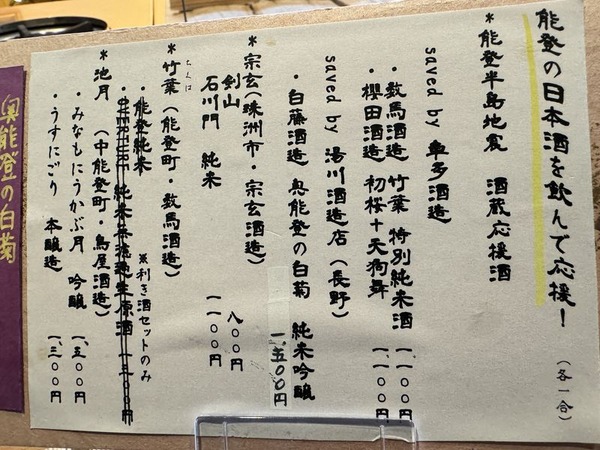 能登の日本酒を飲んで応援！
（各一合）
*能登半島地震　酒蔵応援酒
saved by 車多酒造
・数馬酒造　竹葉　特別純米酒　一、一〇〇円
・櫻田酒造　初桜＋天狗舞　一、一〇〇円
saved by 湯川酒造店（長野）
・白藤酒造　奥能登の白菊　純米吟醸　一、五〇〇円
*宗玄（珠洲市・宗玄酒造）
剣山　八〇〇円
石川門　純米　一一〇〇円
*竹葉（能登町・数馬酒造）
ちくは
・能登純米　※利き酒セットのみ
*池月　（中能登町・鳥屋酒造）
・みなもにうかぶ月　吟醸　一、五〇〇円
・うすにごり　本醸造　一、三〇〇円
（奥能登の白菊